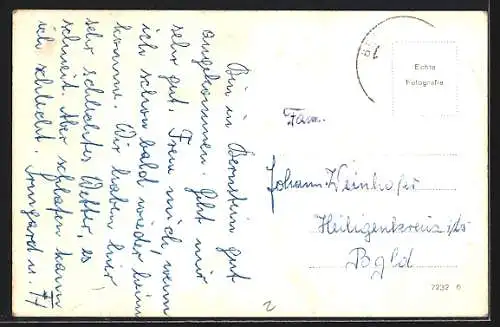 Bin in Bernstein gut
angekommen. Geht mir
sehr gut. Freu mich, wenn
ich schon bald wieder heim
komme. Wir haben hier,
sehr schlechtes Wetter, es
schneit. Aber schlafen kann
ich schlecht. Irmgard u.
Echte
Fotografie
Fam.
Johann Weinhofer
Heiligenkreuz i/L
Bgld
7232 6
2